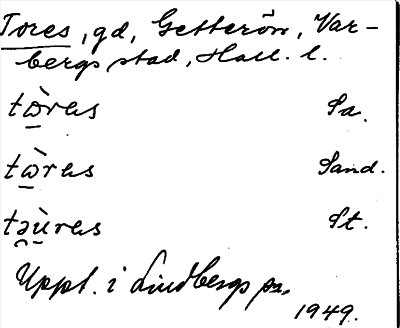 Tores, gd, Getterön, Var-
bergs stad, Hall. l.
tɷ̀rəs Sa.
tɷ̀rəs Sand.
təùrəs St.
Uppt. i Lindbergs sn.
1949.